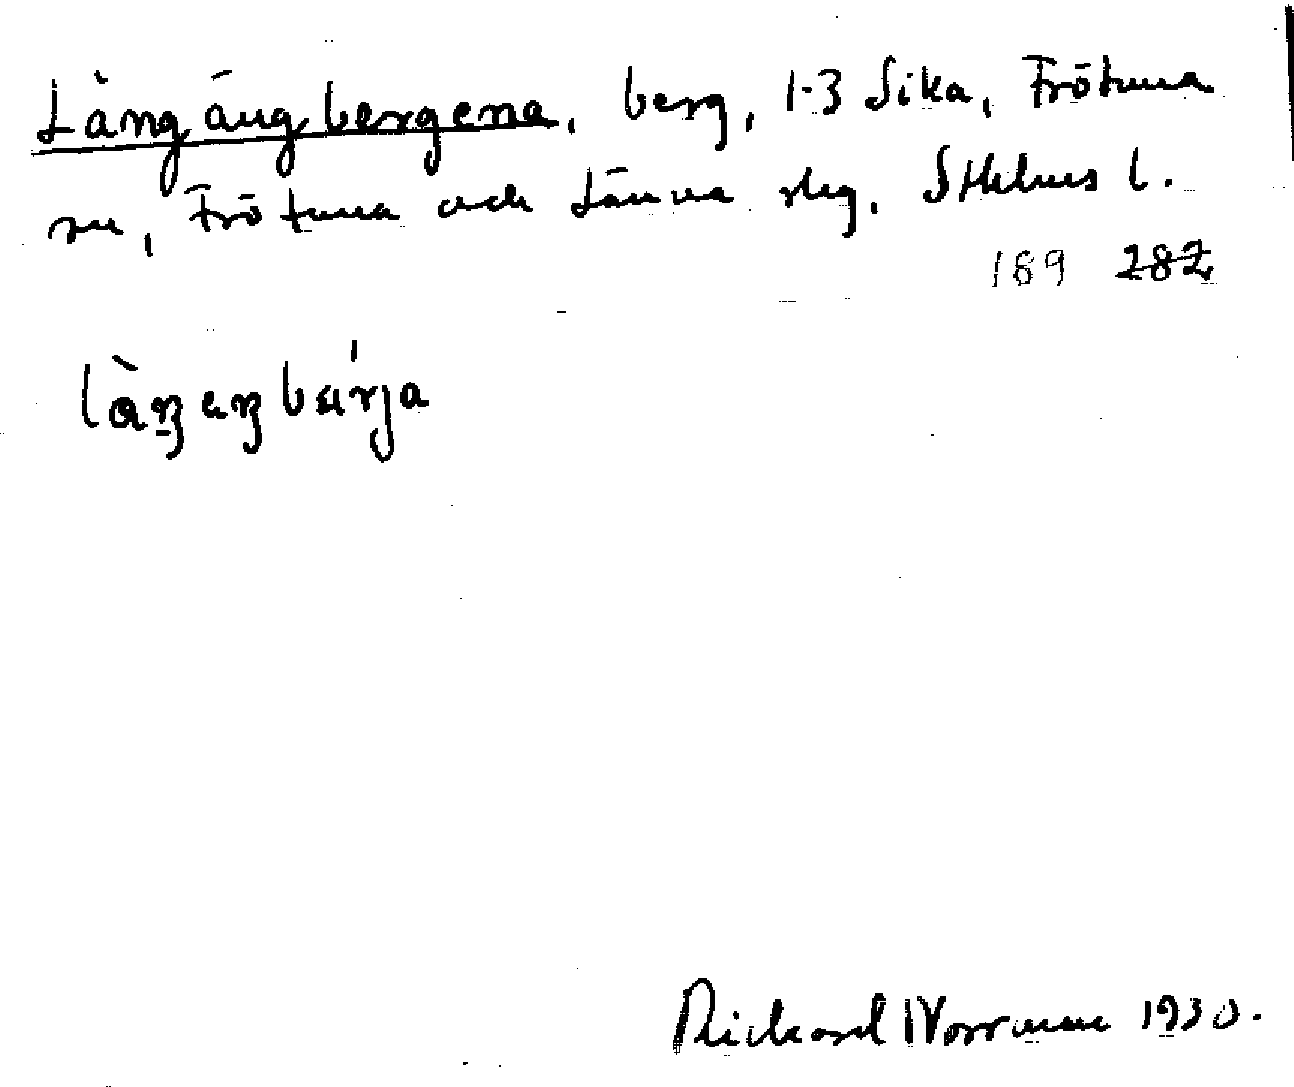 Långängbergena, berg, 1-3 Sika, Frötuna
sn, Frötuna och Länna slg, Sthlms l.
189 282
Rickard Norrman 1930.